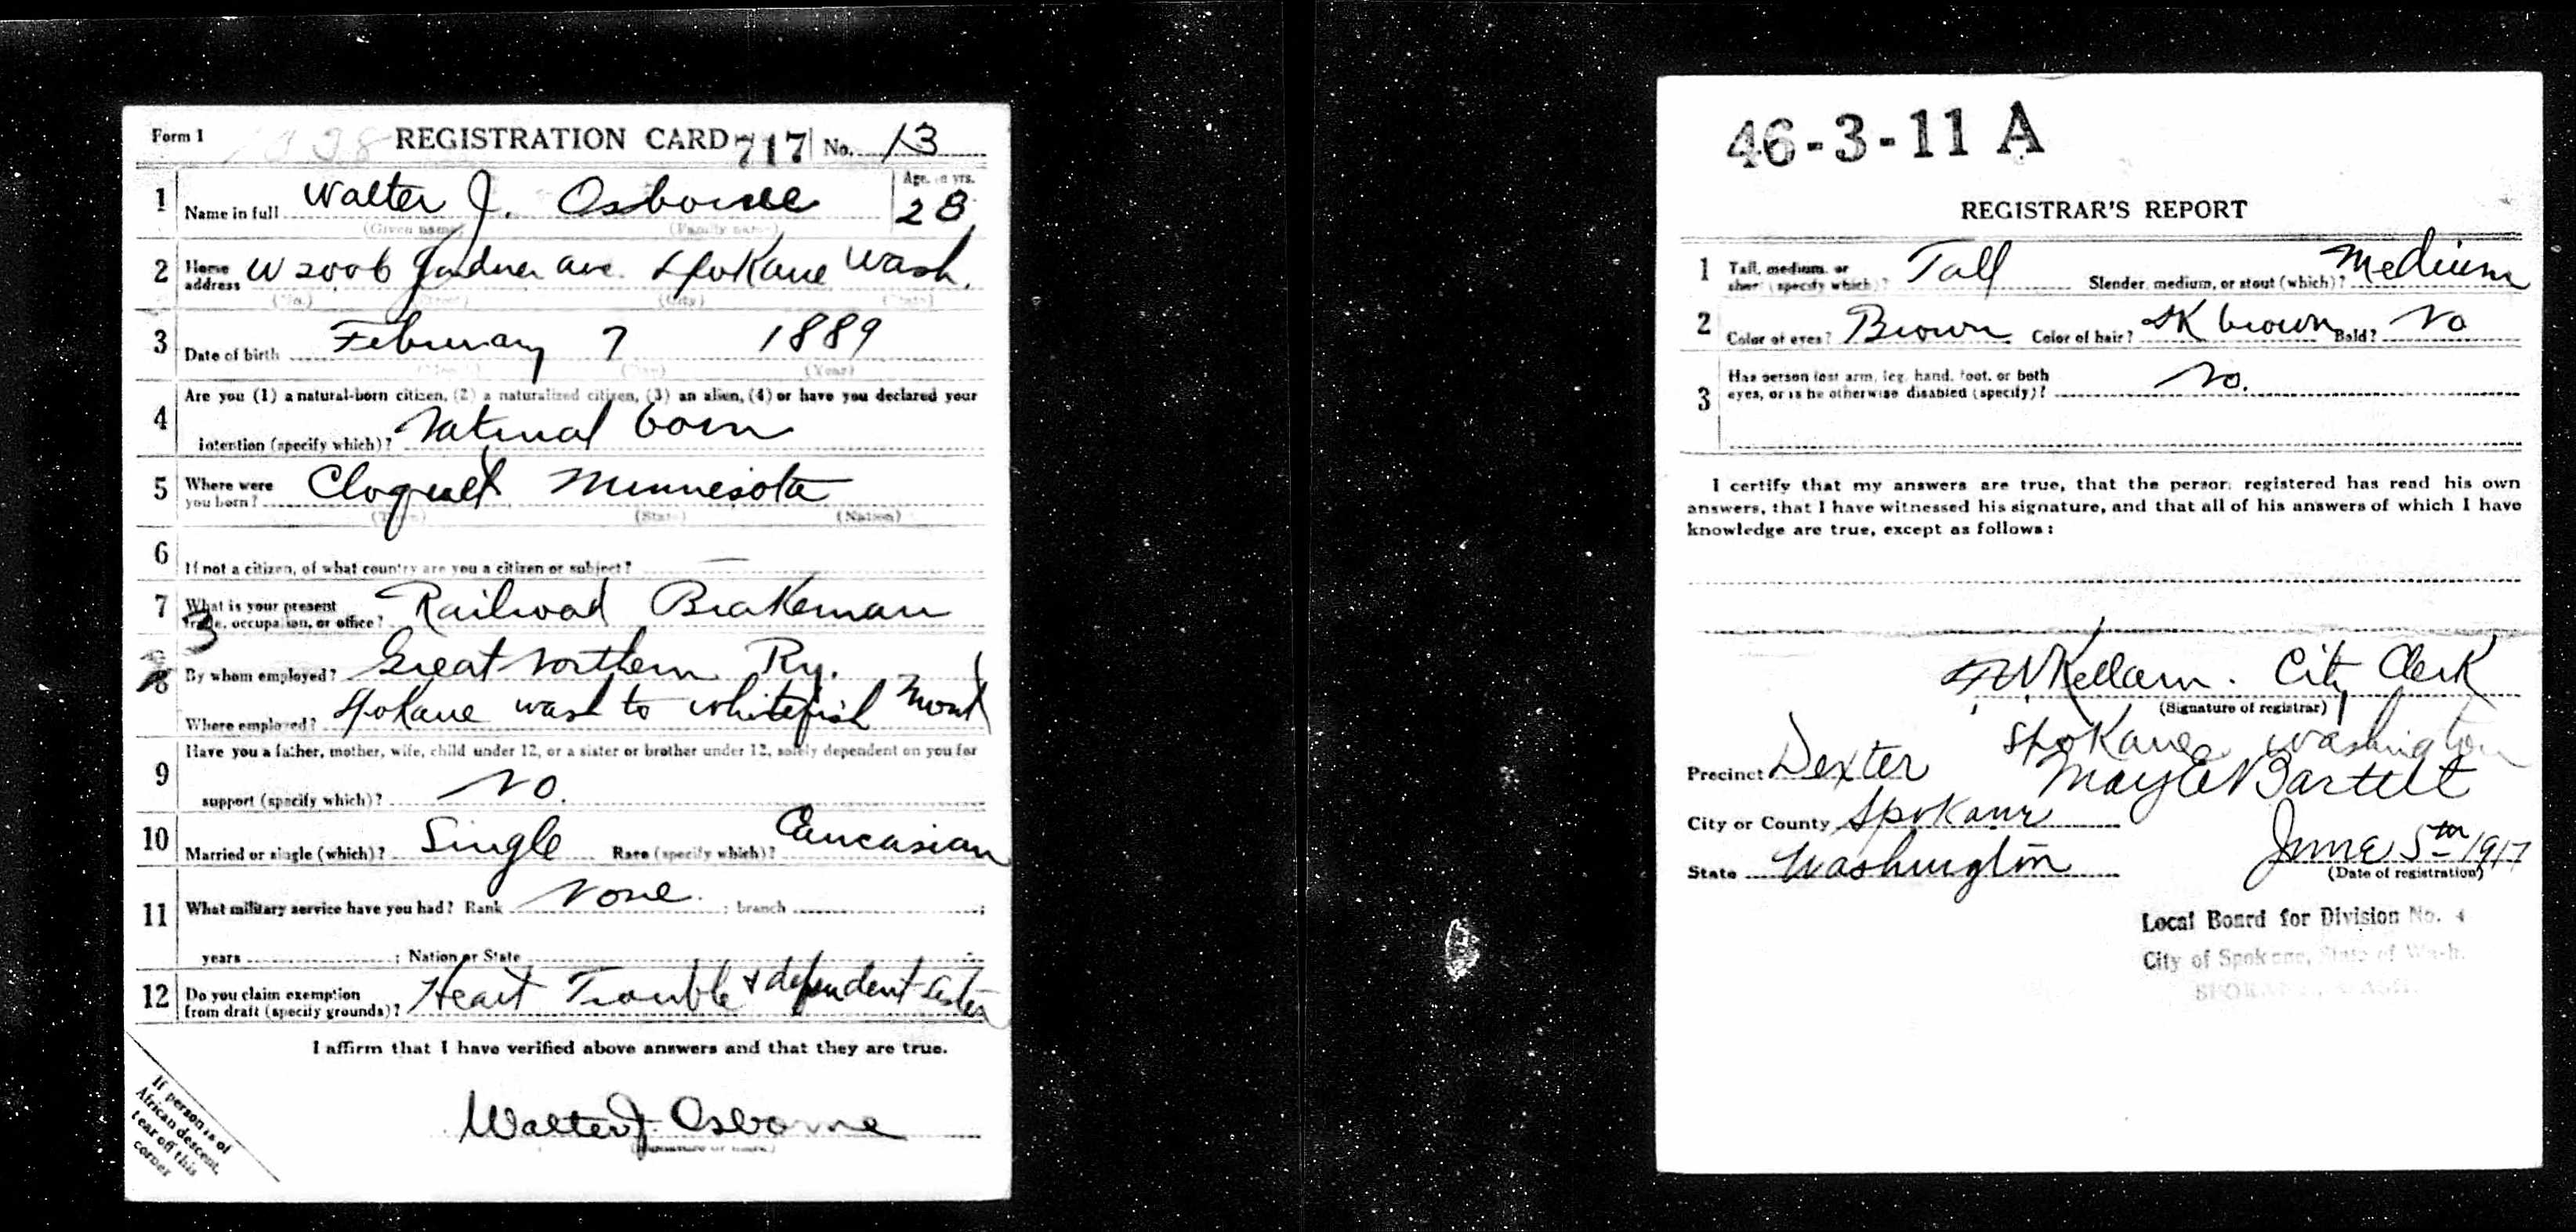 Form 1 REGISTRATION CARD 717 No. 13
1 Name in full Walter J. Osborne Age, in yrs. 28
(Given name) (Family name)
2 Home address W 2006 Gardner ave. Spokane Wash.
(No.) (Street) (City) (State)
3 Date of birth February 7 1889
(Month) (Day) (Year)
4 Are you (1) a natural-born citizen, (2) a naturalized citizen, (3) an alien, (4) or have you declared your
intention (specify which)? Natural born
5 Where were you born? Cloquet Minnesota
(Town) (State) (Nation)
6 If not a citizen, of what country are you a citizen or subject? —
7 What is your present trade, occupation, or office? Railroad Brakeman
3
8 By whom employed? Great Northern Ry.
Where employed? Spokane Wash to Whitefish Mont
9 Have you a father, mother, wife, child under 12, or a sister or brother under 12, solely dependent on you for
support (specify which)? No.
10 Married or single (which)? Single Race (specify which)? Caucasian
11 What military service have you had? Rank None. ; branch ;
years ; Nation or State
12 Do you claim exemption from draft (specify grounds)? Heart Trouble + dependent sister
I affirm that I have verified above answers and that they are true.
Walter J Osborne
(Signature or mark)
If person is of
African descent,
tear off this
corner
46-3-11 A
REGISTRAR'S REPORT
1 Tall, medium, or short (specify which)? Tall Slender, medium, or stout (which)? Medium
2 Color of eyes? Brown Color of hair? Dk brown Bald? No
3 Has person lost arm, leg, hand, foot, or both
eyes, or is he otherwise disabled (specify)? No.
I certify that my answers are true, that the person registered has read his own
answers, that I have witnessed his signature, and that all of his answers of which I have
knowledge are true, except as follows:
Kellam. City Clerk
(Signature of registrar)
Spokane Washington
Precinct Dexter May E Bartlett
City or County Spokane
State Washington June 5th 1917
(Date of registration)
Local Board for Division No. 4
City of Spokane, State of Wash.
SPOKANE, WASH.